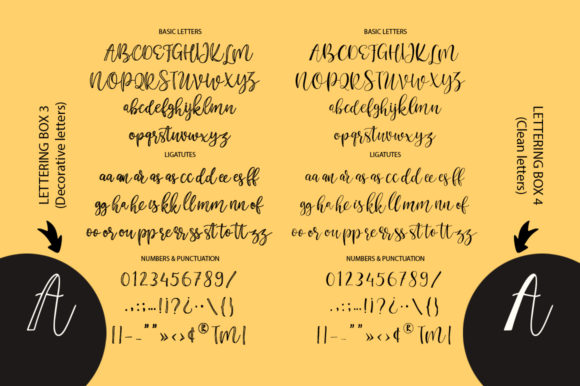 LETTERING BOX 3
(Decorative letters)
A
BASIC LETTERS
ABCDEFGHIJKLM
NOPQRSTUVWXYZ
abcdefghijklmn
opqrstuvwxyz
LIGATUTES
aa an ar as as cc dd ee ff
gg ha he is kk ll mm nn of
oo or ou pp re rr ss st to tt zz
NUMBERS & PUNCTUATION
0123456789/
.,:;...!¡?¿··\{}
||-_""»‹›¢®TM|
BASIC LETTERS
ABCDEFGHIJKLM
NOPQRSTUVWXYZ
abcdefghijklmn
opqrstuvwxyz
LIGATUTES
aa an ar as as cc dd ee ff
gg ha he is kk ll mm nn of
oo or ou pp re rr ss st to tt zz
NUMBERS & PUNCTUATION
0123456789/
.,:;...!¡?¿··\{}
||-_""»‹›¢®TM|
LETTERING BOX 4
(Clean letters)
A